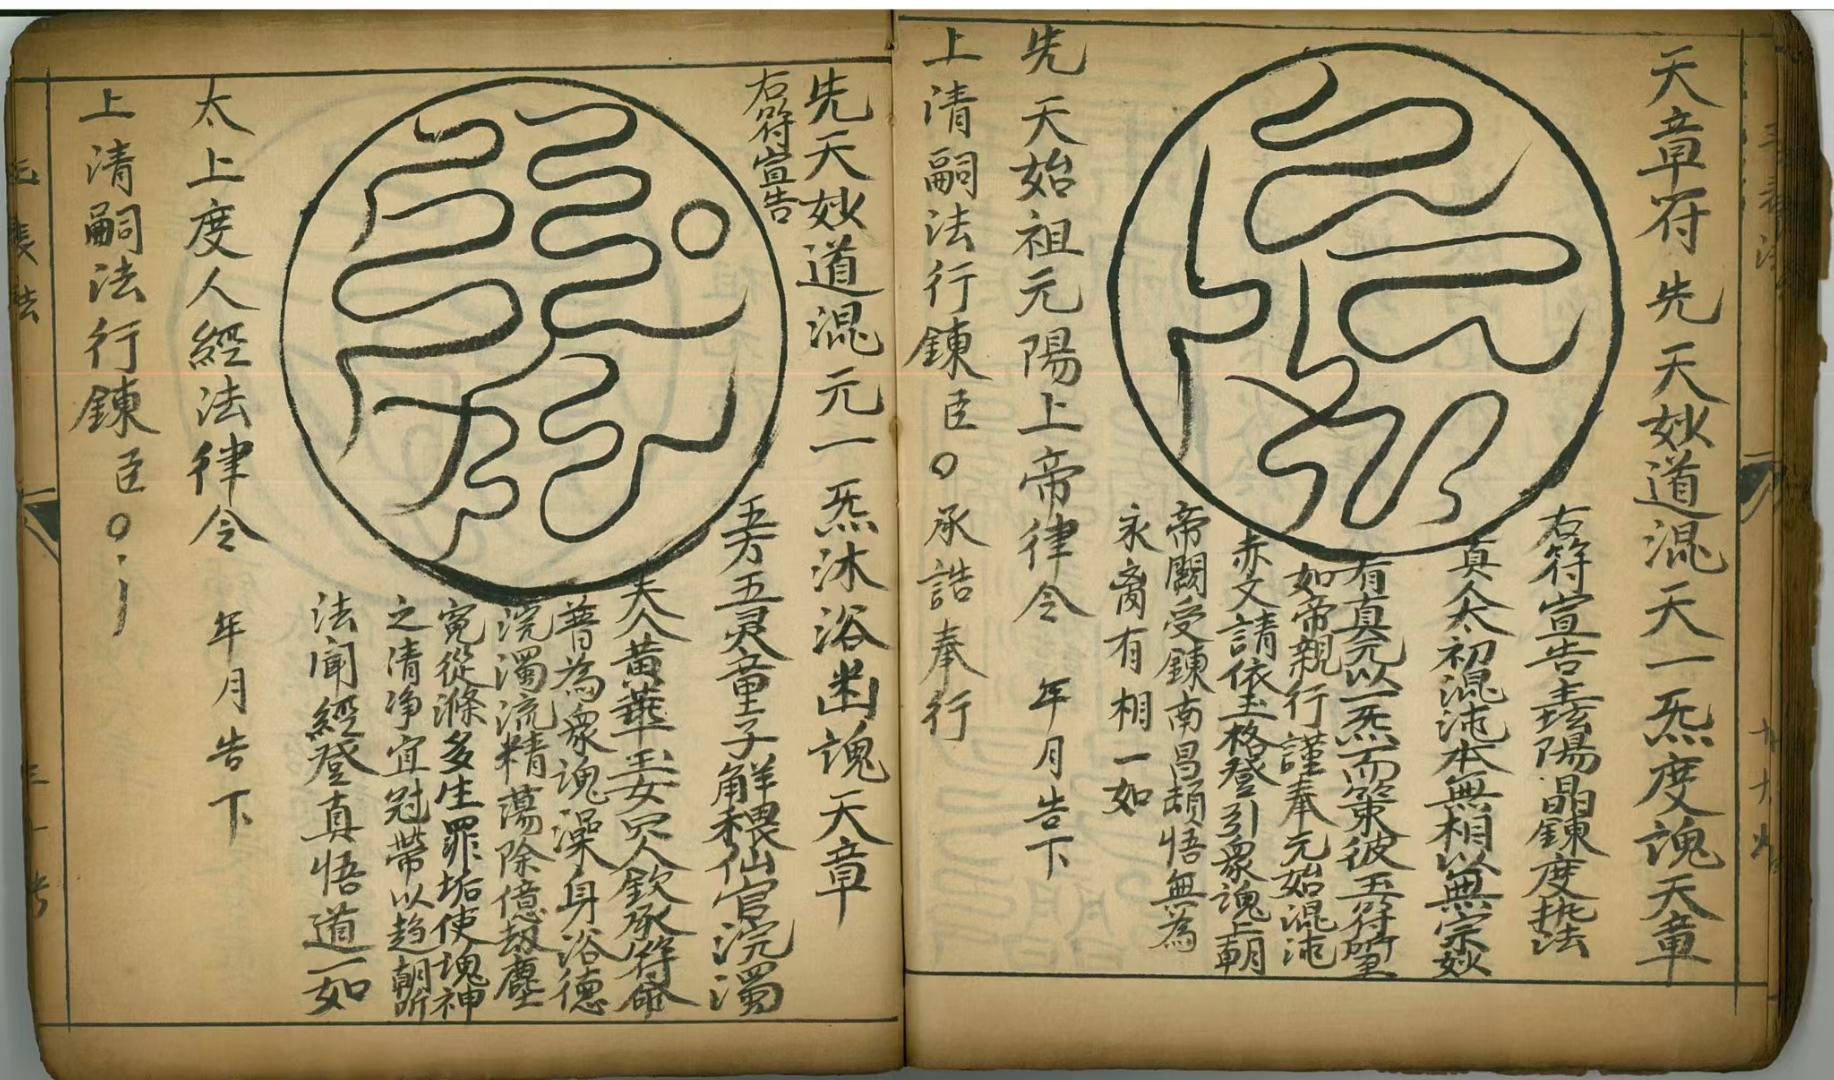 天章符 先天妙道混天一炁度魂天章
右符宣告
陽晶鍊度
真人太初混沌本無相以無宗妙
有真元以一炁而策彼吾符所至
如帝親行謹奉元始混沌
赤文請依玉格登引眾魂上朝
帝闕受鍊南昌頓悟無為
永裔有相一如
先天始祖元陽上帝律令 年月告下
上清嗣法行鍊臣〇承誥奉行
先天妙道混元一炁沐浴幽魂天章
右符宣告
五方五灵童子解穢仙官浣濁
夫人黃華玉女眾人欽承符命
普為眾魂澡身浴德
浣濁流精蕩除億劫塵
冤從滌多生罪垢使魂神
之清净宜冠帶以趋朝所
法聞經登真悟道一如
太上度人經法律令 年月告下
上清嗣法行鍊臣〇